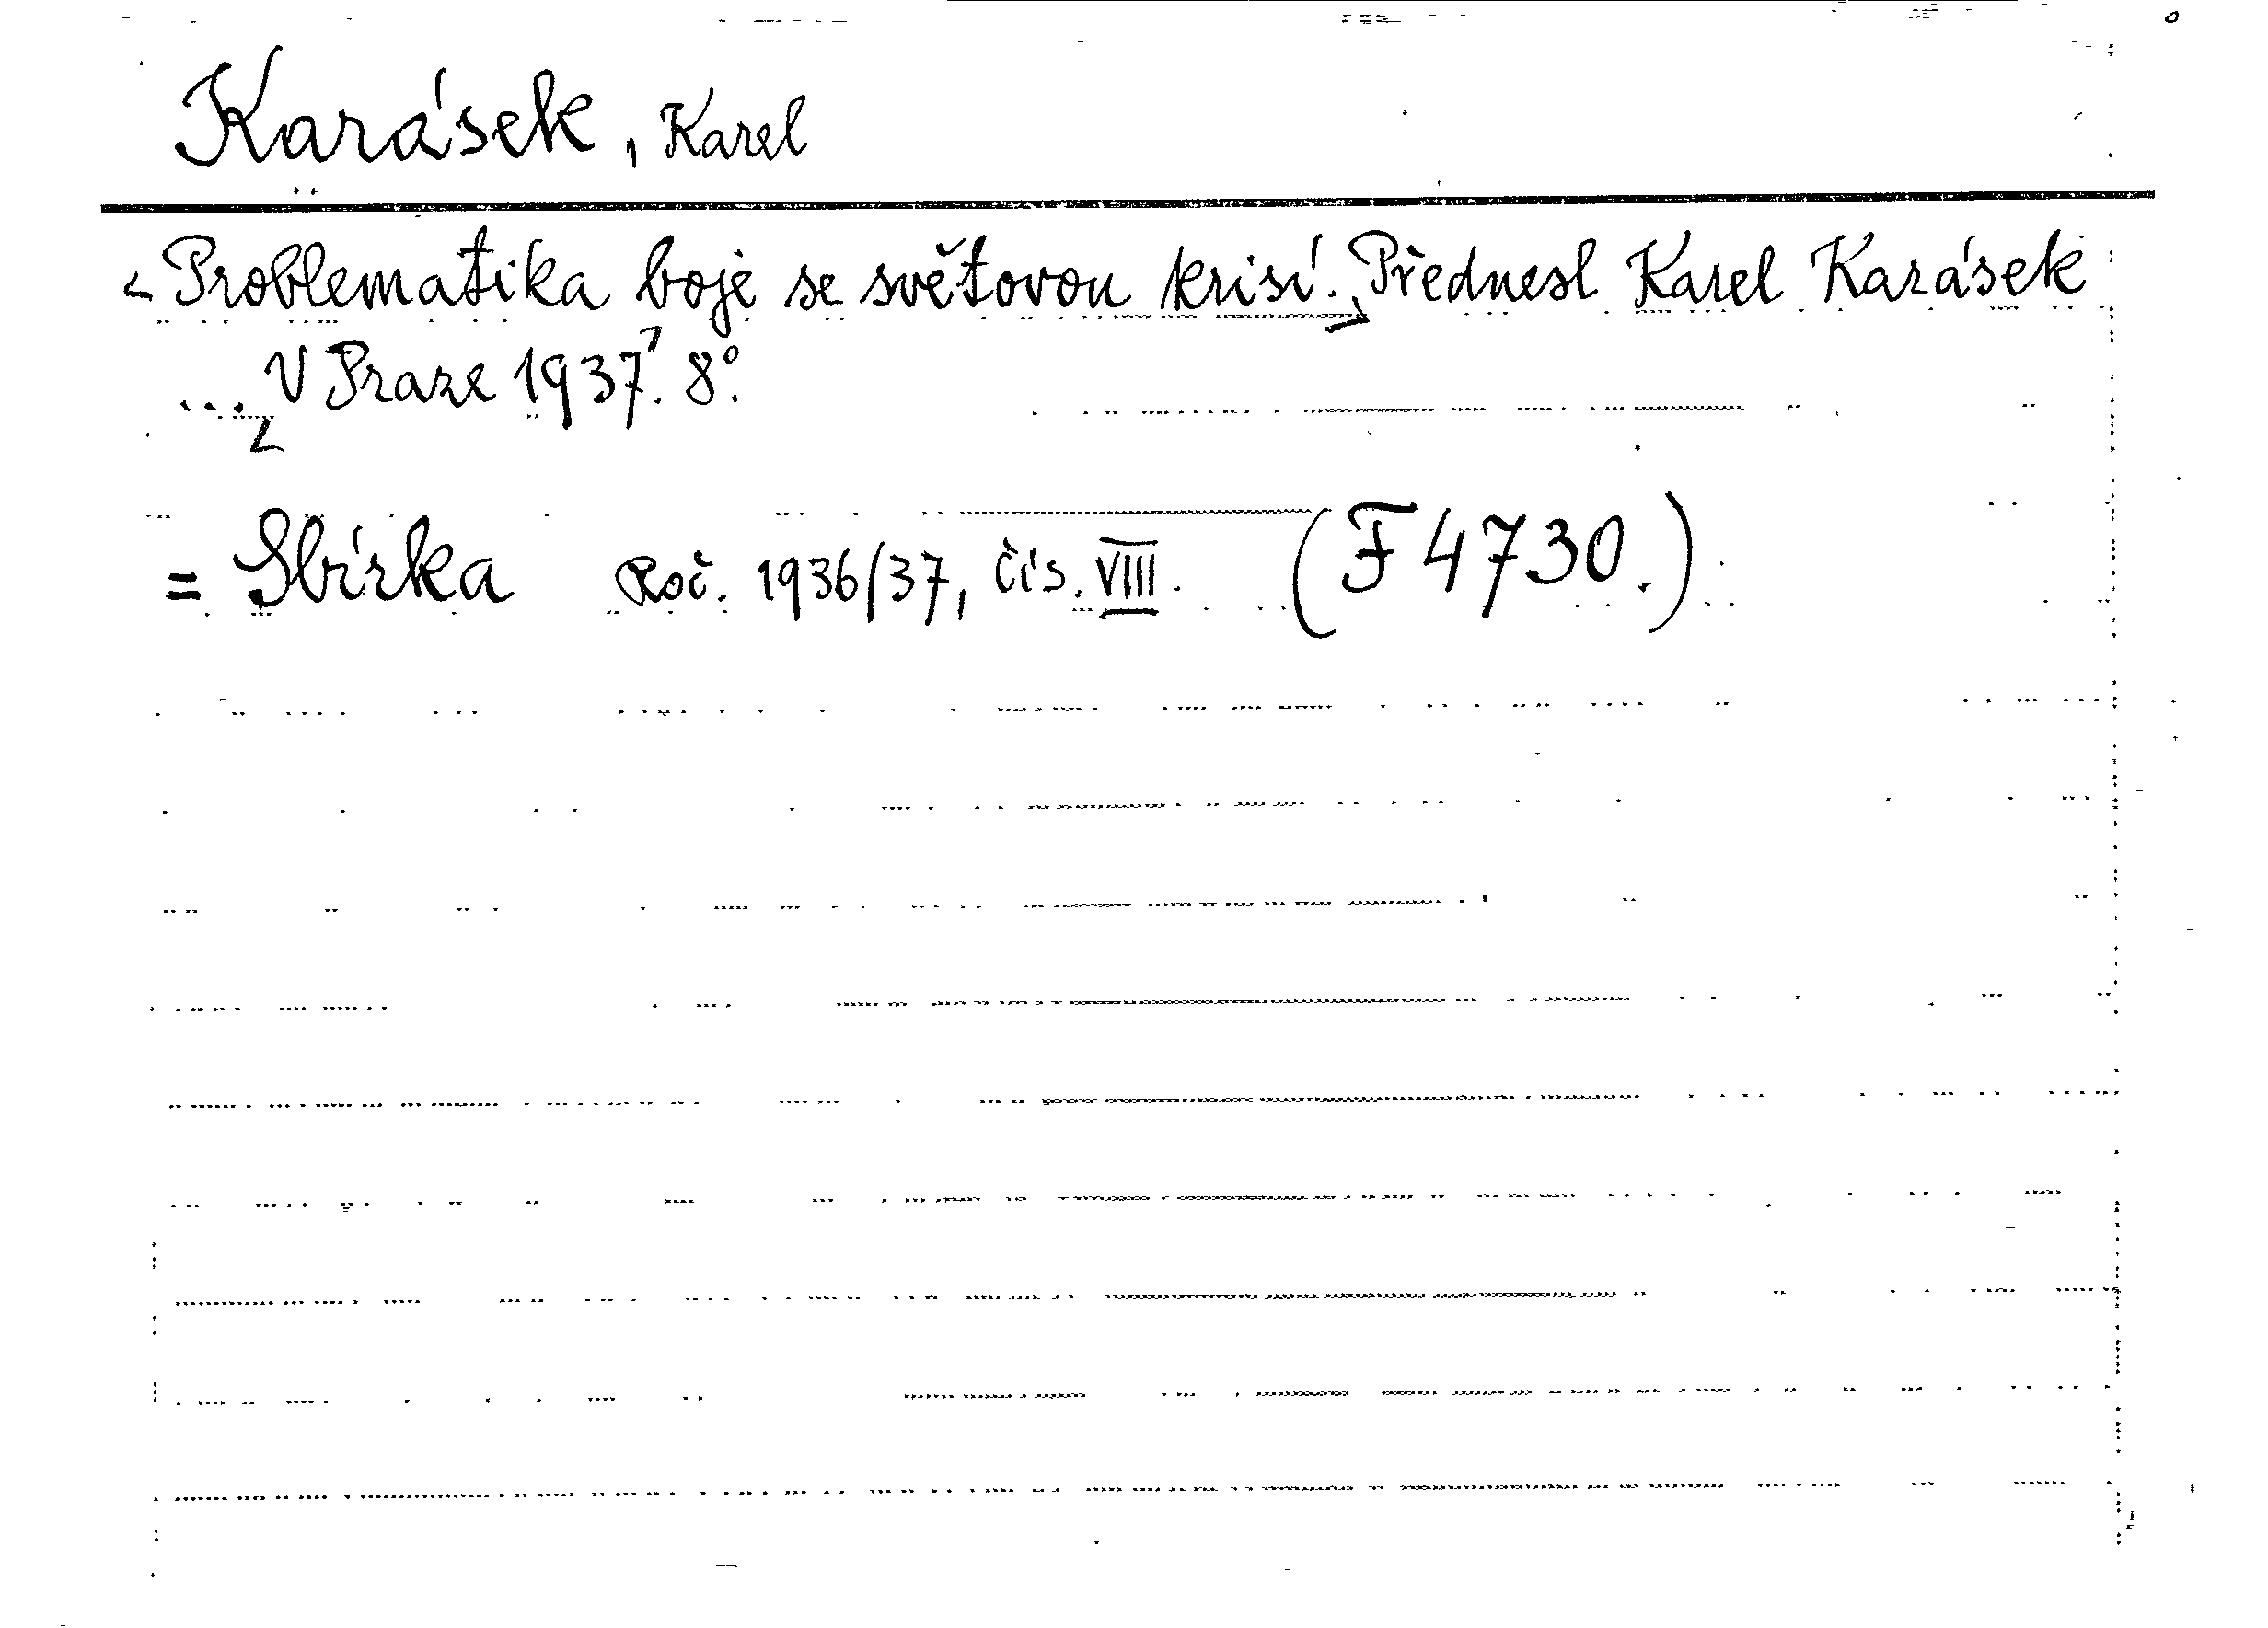 Karásek, Karel
Problematika boje se světovou krisí. Přednesl Karel Karásek
... V Praze 1937. 8°.
= Sbírka Roč. 1936/37, čís. VIII. (F 4730.)